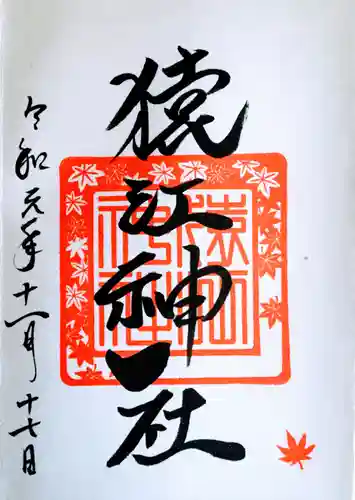 猿江神社
令和元年十一月十七日
猿江神社